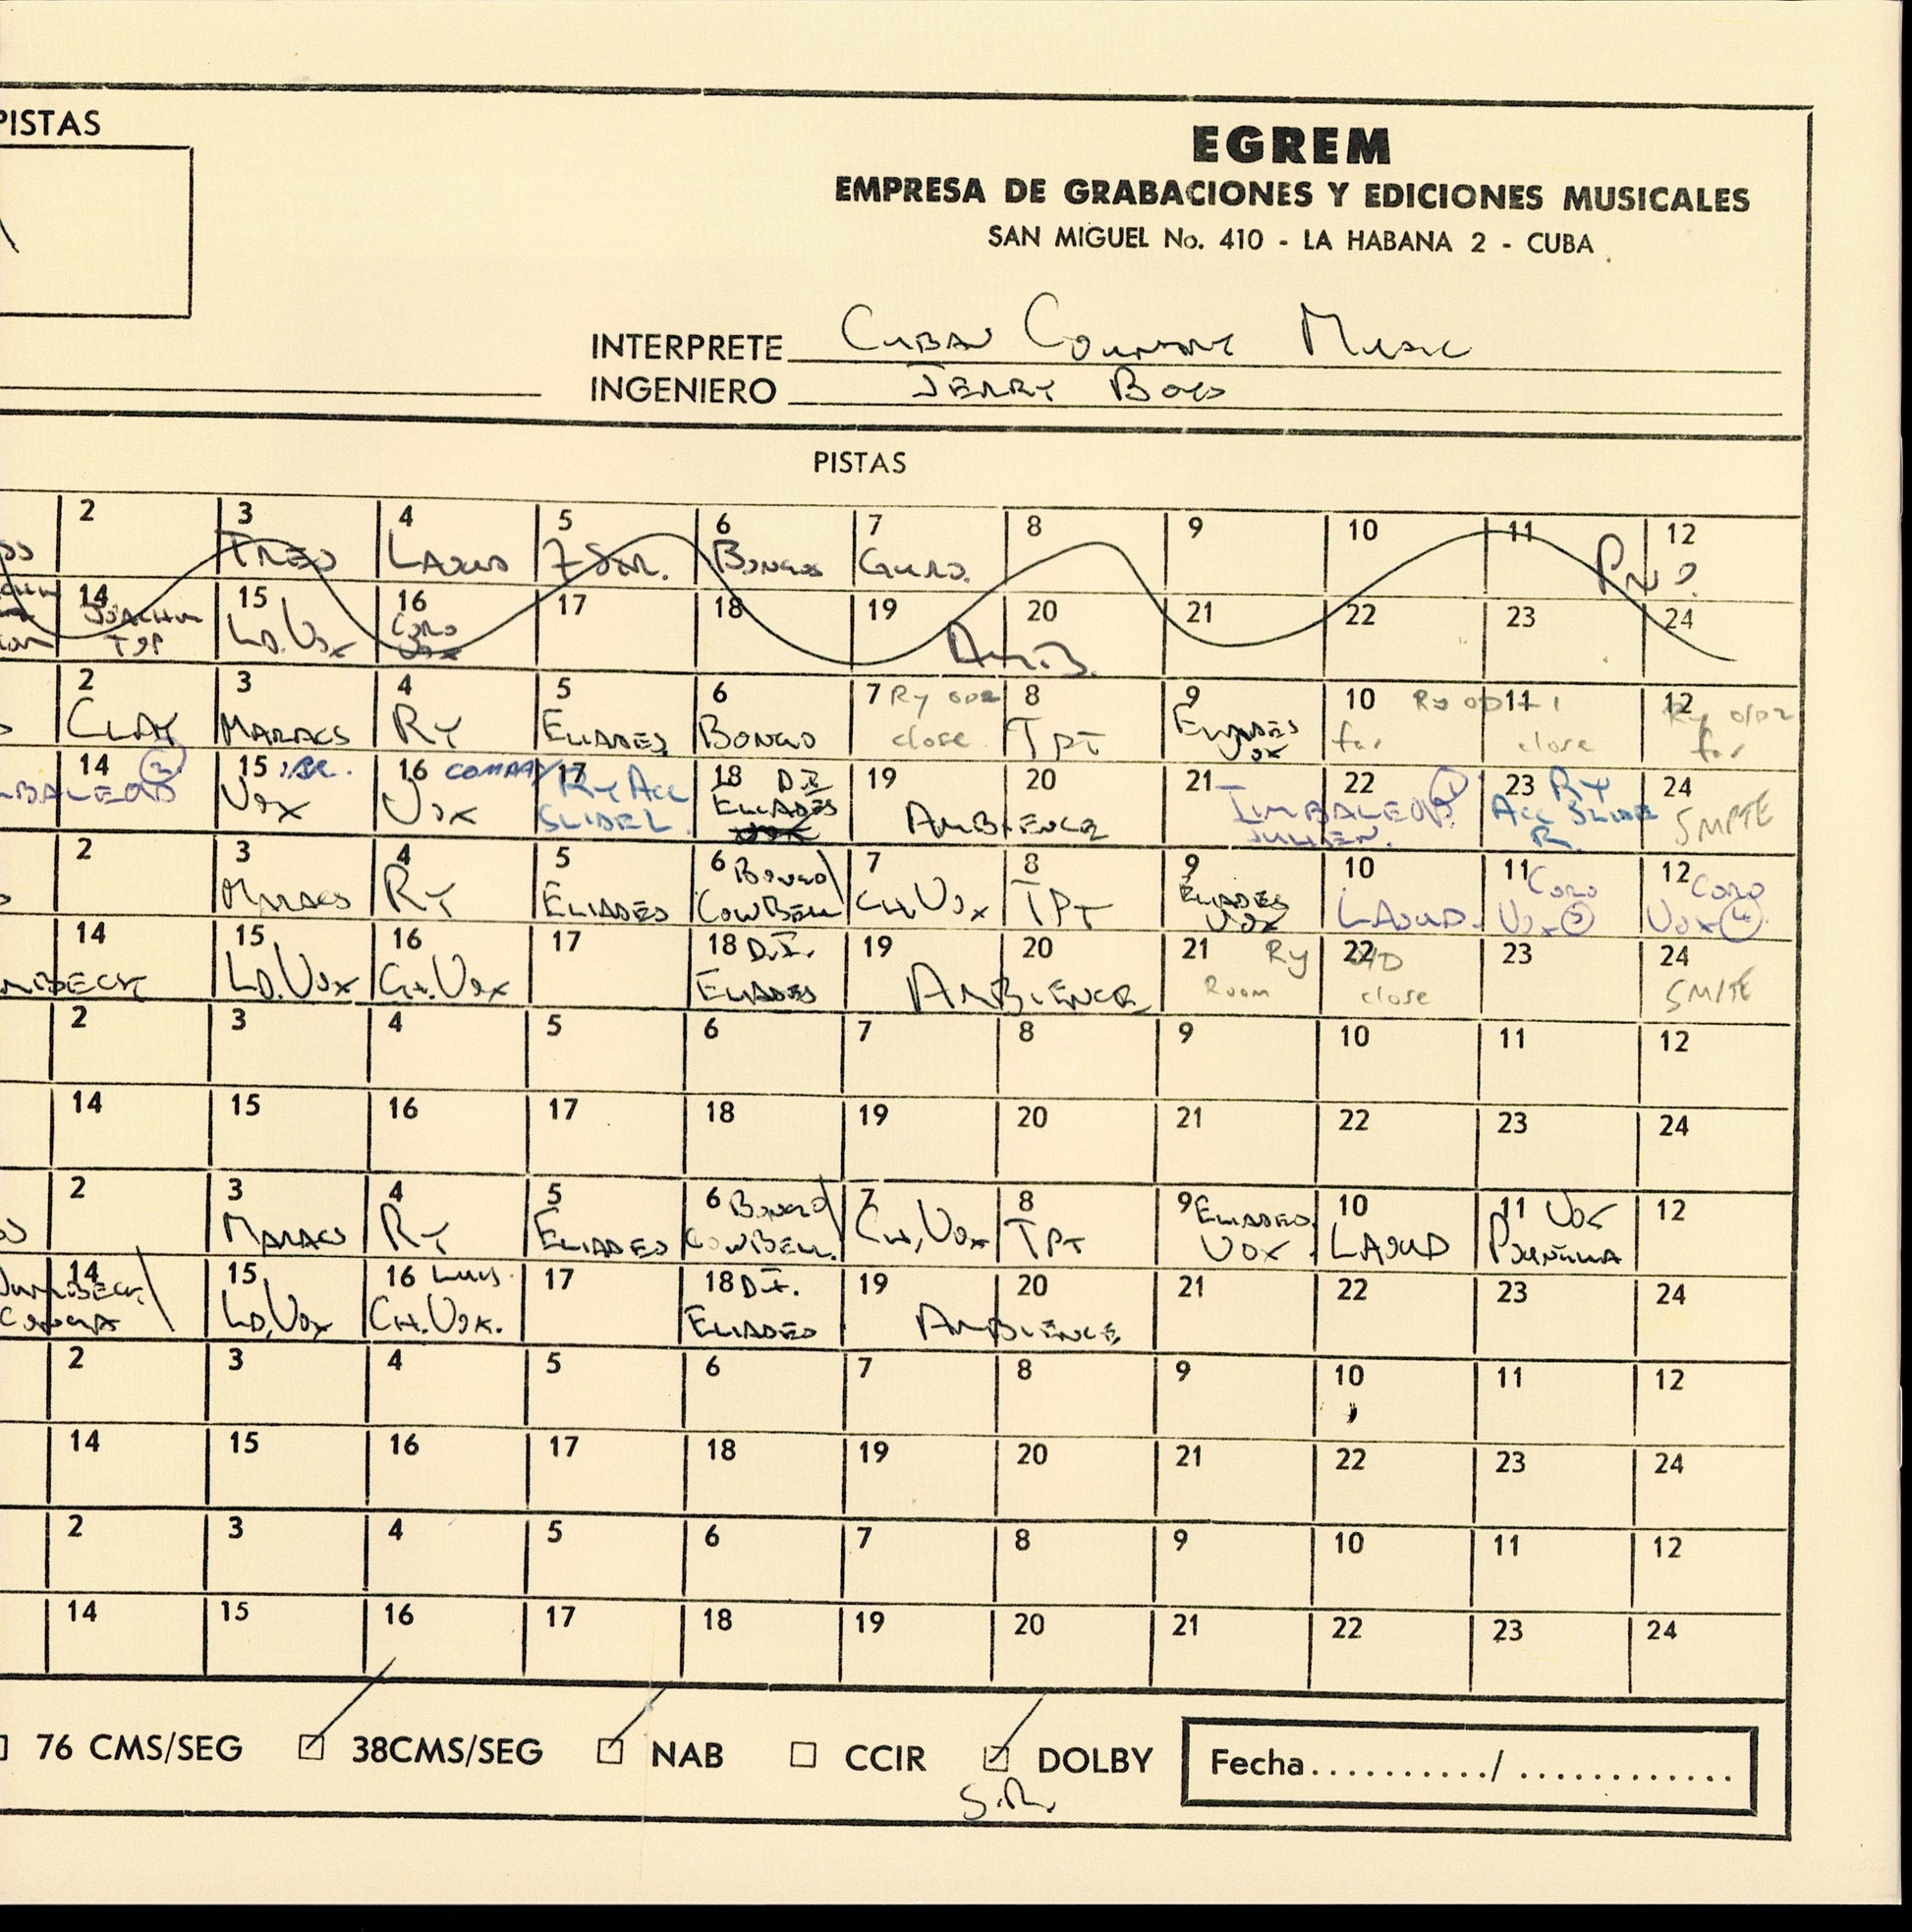 PISTAS
EGREM
EMPRESA DE GRABACIONES Y EDICIONES MUSICALES
SAN MIGUEL No. 410 - LA HABANA 2 - CUBA
INTERPRETE Cuban Country Music
INGENIERO JERRY BOYS
PISTAS
2 3 4 5 6 7 8 9 10 11 12
TRES LAOUD 7 STR. BONGOS GUIRO. PNO.
14 15 16 17 18 19 20 21 22 23 24
LD. VOX CORO VOX AMB.
2 3 4 5 6 7 Ry 8 9 10 Ry 11 12 Ry
CLAY MARACS RY ELIADES BONGO close TPT ELIADES VOX far close far
14 2 15 16 COMPAY 17 RY ACC 18 D.I. 19 20 21 22 1 23 RY 24
VOX VOX SLIDE L ELIADES AMBIENCE TIMBALE JULIEN. ACC SLIDE R SMPTE
2 3 4 5 6 BONGO 7 8 9 10 11 CORO 12 CORO
MARACS RY ELIADES COWBELL CH VOX TPT ELIADES VOX LAOUD. VOX 3 VOX 4
14 15 16 17 18 D.I. 19 20 21 Ry 22 O/D 23 24
LD. VOX CH. VOX ELIADES AMBIENCE Room close SMPTE
2 3 4 5 6 7 8 9 10 11 12
14 15 16 17 18 19 20 21 22 23 24
2 3 4 5 6 BONGO 7 8 9 ELIADES 10 11 VOX 12
MARACS RY ELIADES COWBELL. CH. VOX TPT VOX LAOUD PUNTILLA
14 15 16 LUIS 17 18 D.I. 19 20 21 22 23 24
LD. VOX CH. VOX. ELIADES AMBIENCE
2 3 4 5 6 7 8 9 10 11 12
14 15 16 17 18 19 20 21 22 23 24
2 3 4 5 6 7 8 9 10 11 12
14 15 16 17 18 19 20 21 22 23 24
76 CMS/SEG 38CMS/SEG NAB CCIR DOLBY Fecha........../.............
S.R.